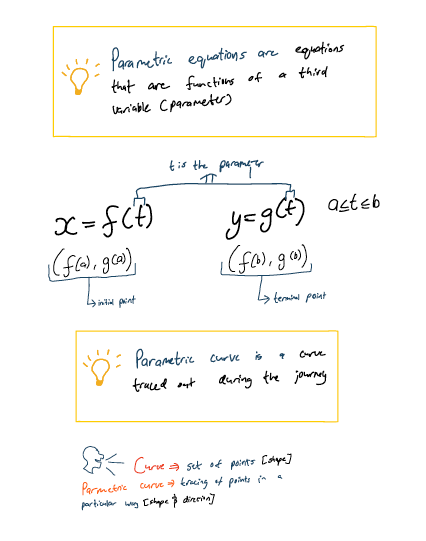 Parametric equations are equations
that are functions of a third
variable (parameter)
t is the parameter
x = f(t) y = g(t) a≤t≤b
(f(a), g(a)) (f(b), g(b))
↳ initial point ↳ terminal point
Parametric curve is a curve
traced out during the journey
Curve ⇒ set of points [shape]
Parametric curve ⇒ tracing of points in a
particular way [shape & direction]